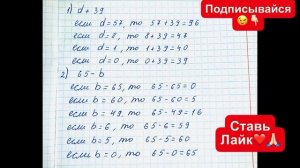 1) d + 39
если d = 57, то 57 + 39 = 96
если d = 8, то 8 + 39 = 47
если d = 1, то 1 + 39 = 40
если d = 0, то 0 + 39 = 39
2) 65 - b
если b = 65, то 65 - 65 = 0
если b = 60, то 65 - 60 = 5
если b = 49, то 65 - 49 = 16
если b = 6, то 65 - 6 = 59
если b = 5, то 65 - 5 = 60
если b = 0, то 65 - 0 = 65
Подписывайся
Ставь
Лайк❤️🙏